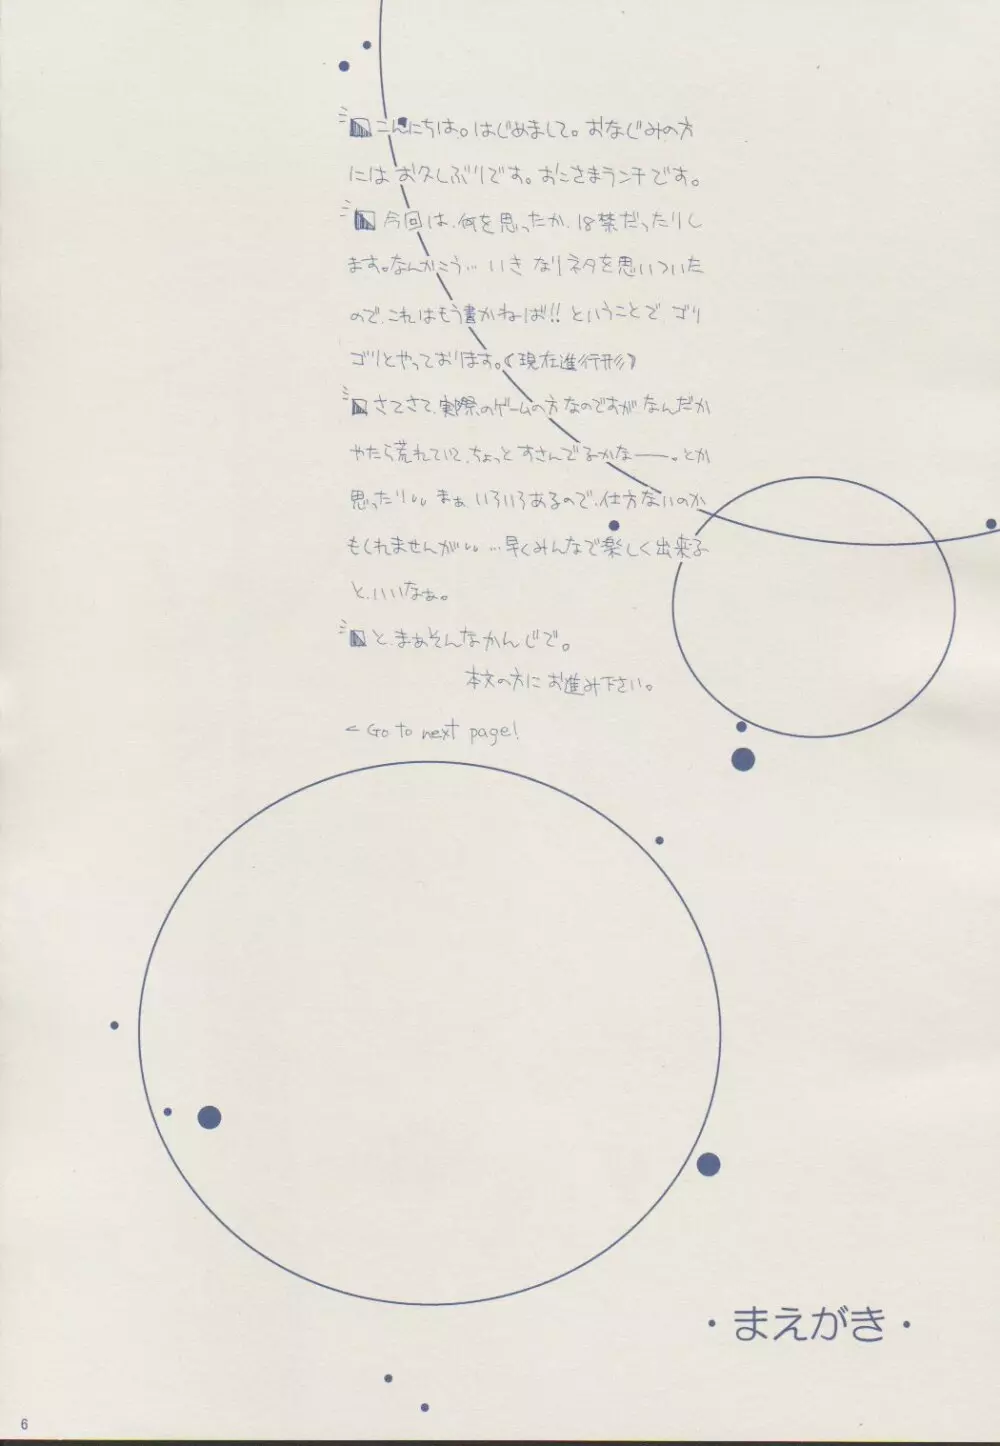 こんにちは。はじめまして。おなじみの方
には お久しぶりです。おこさまランチです。
今回は、何を思ったか、18禁だったりし
ます。なんかこう… いきなりネタを思いついた
ので、これはもう書かねば!! ということで、ゴリ
ゴリとやっております。《現在進行形》
さてさて、実際のゲームの方なのですが なんだか
やたら荒れていて、ちょっと すさんでるかなー。とか
思ったり、、 まぁ いろいろあるので、仕方ないのか
もしれませんが、、 …早くみんなで楽しく出来る
と、いいなぁ。
と、まぁそんなかんじで。
本文の方に お進み下さい。
< Go to next page!
・まえがき・
6